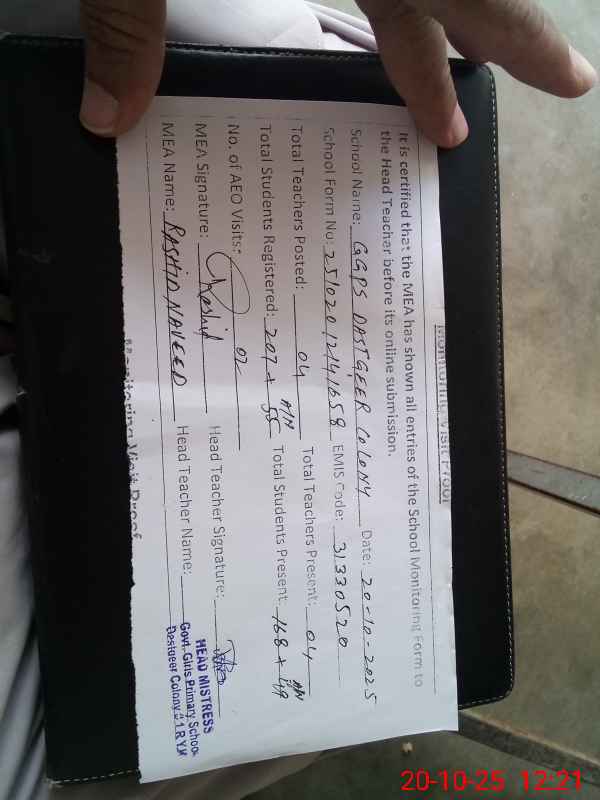 Monitoring Visit Proof
It is certified that the MEA has shown all entries of the School Monitoring Form to
the Head Teacher before its online submission.
School Name: GGPS DASTGEER COLONY Date: 20-10-2025
School Form No: 25102012141658 EMIS Code: 31330520
Total Teachers Posted: 04 Total Teachers Present: 04
Total Students Registered: 207 + 55 A/N Total Students Present: 168 + 49 A/N
No. of AEO Visits: 02
MEA Signature: Rashid Head Teacher Signature:
MEA Name: RASHID NAVEED Head Teacher Name:
HEAD MISTRESS
Govt. Girls Primary School
Destgeer Colony # 1 R Y K
Monitoring Visit Proof
20-10-25 12:21